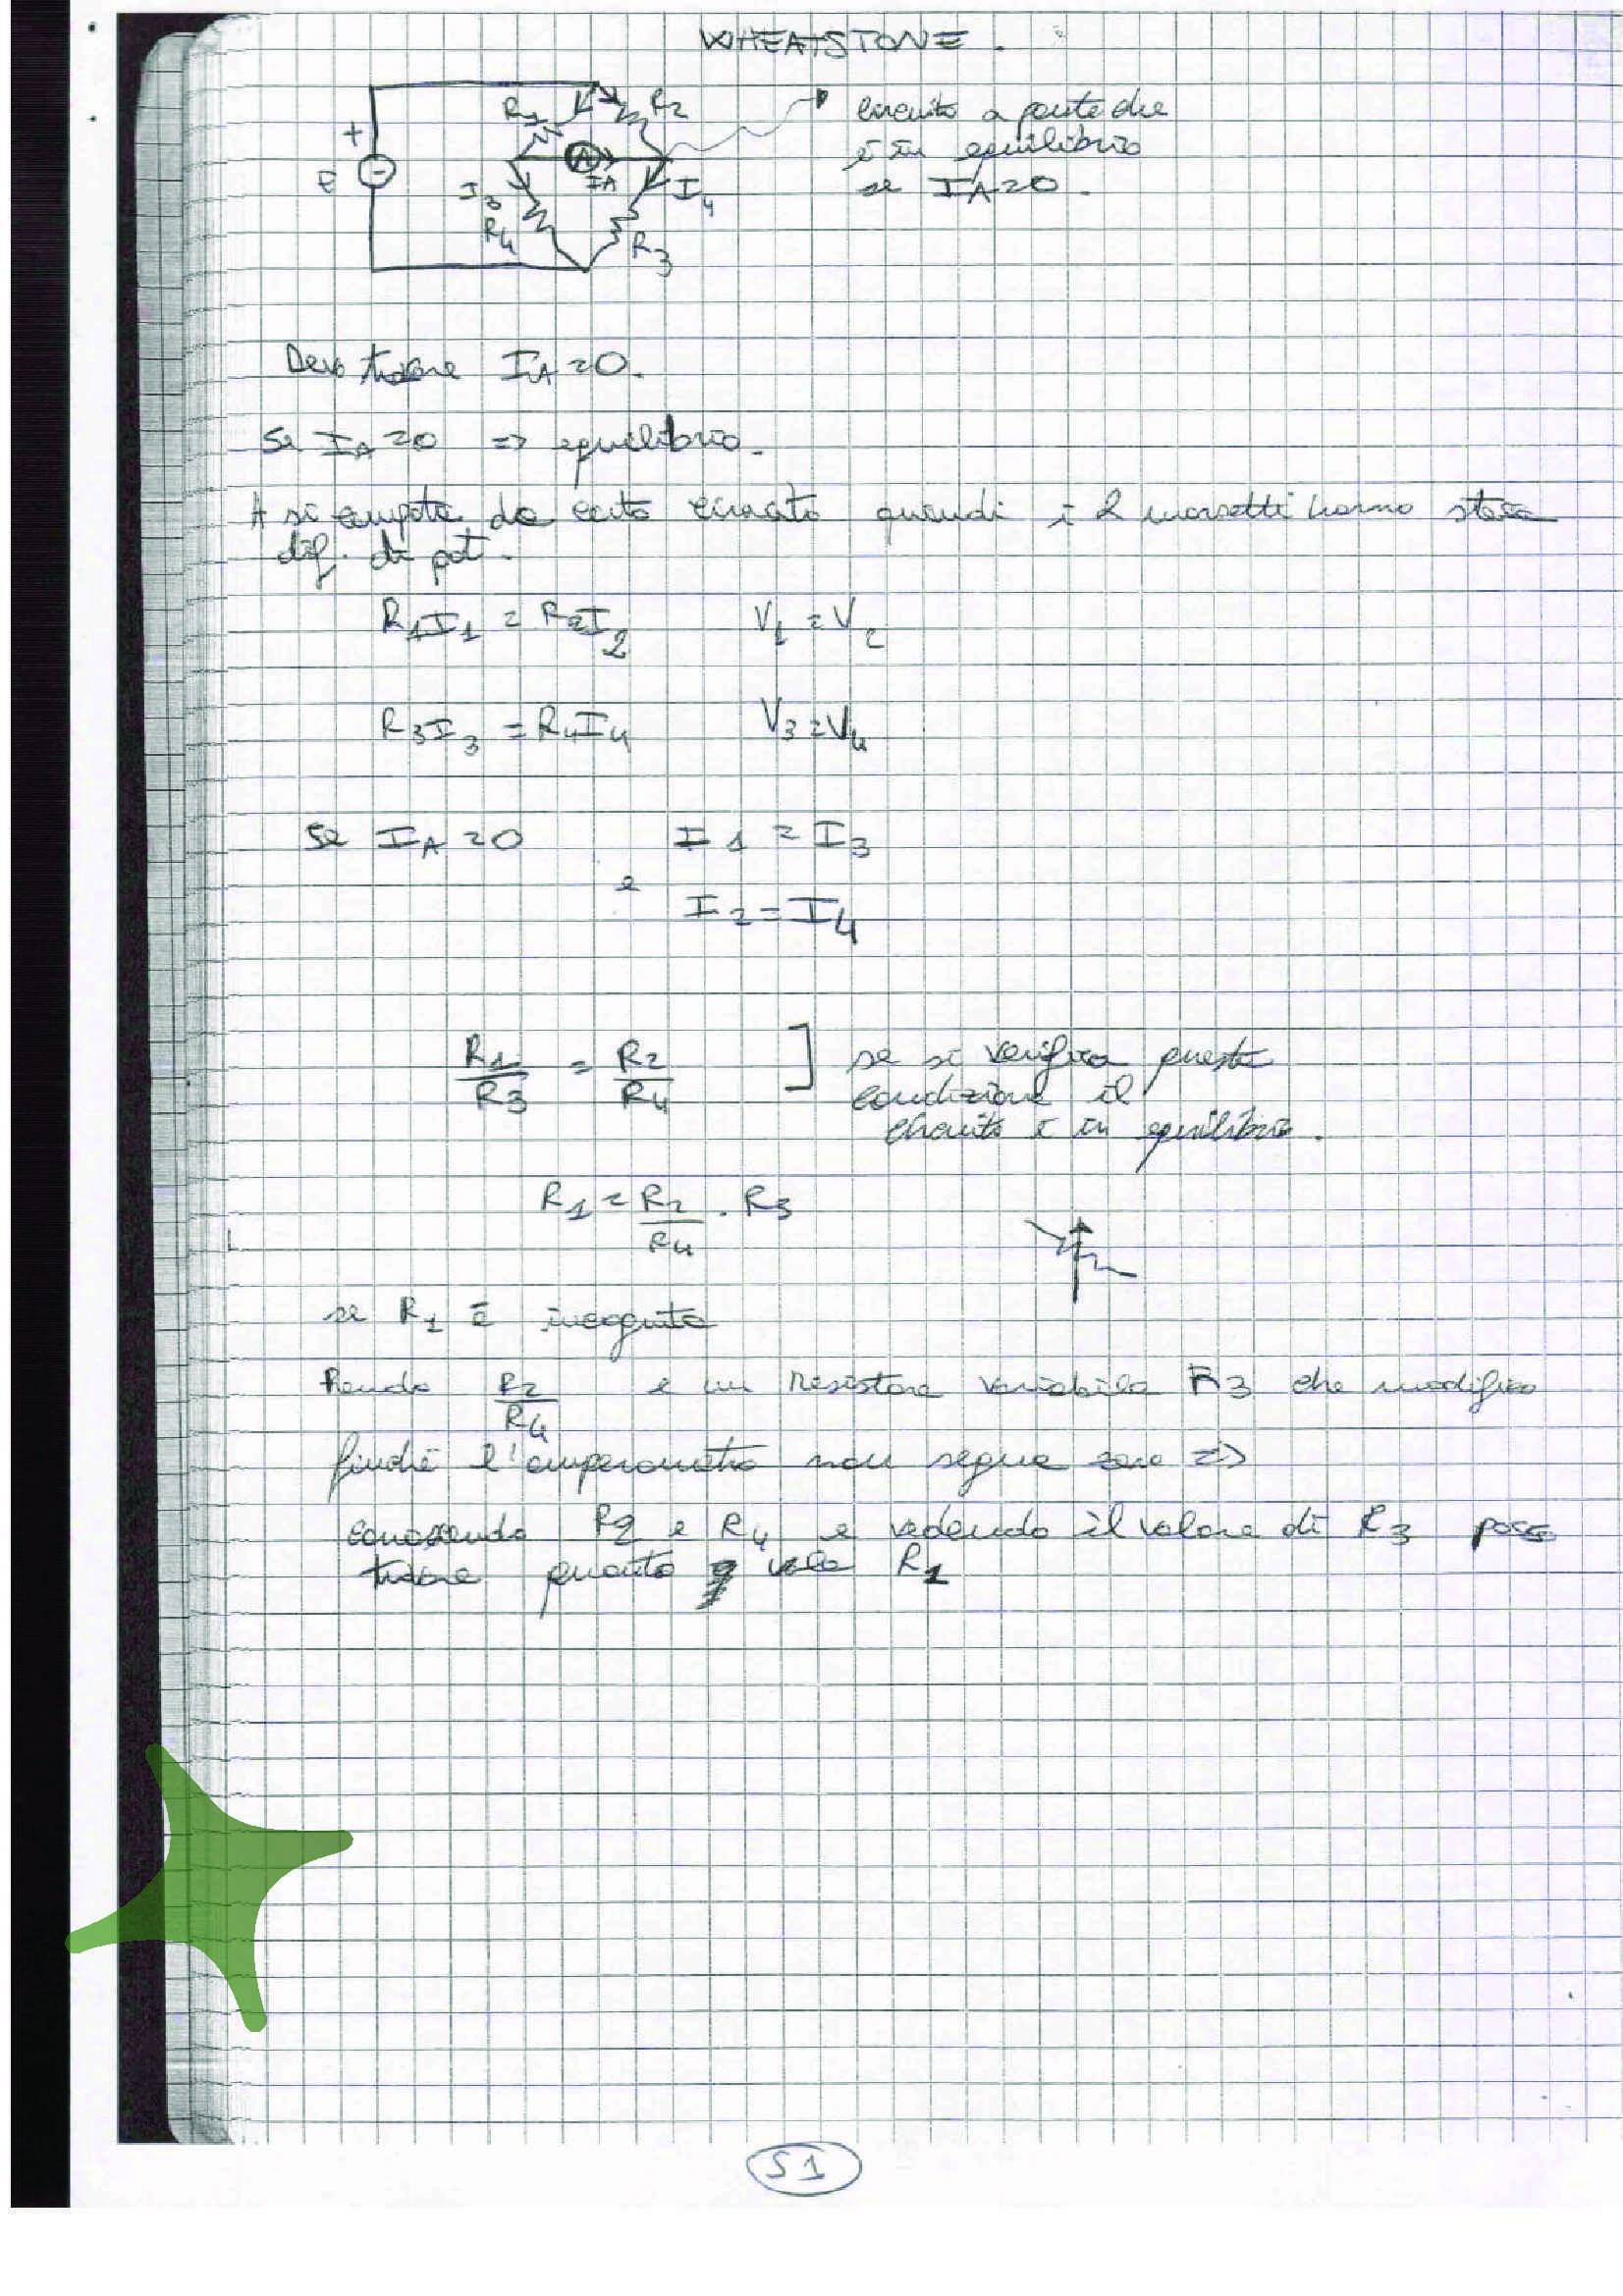 WHEATSTONE.
R1 R2
+
E
A
IA
I3 I4
R4 R3
circuito a ponte che
è in equilibrio
se IA=0.
Devo trovare IA=0.
Se IA=0 => equilibrio.
A si comporta da corto circuito quindi i 2 morsetti hanno stessa
dif. di pot.
R1I1 = R2I2 V1 = V2
R3I3 = R4I4 V3=V4
Se IA=0 I1 = I3
e
I2=I4
R1/R3 = R2/R4 ] se si verifica questa
condizione il
circuito è in equilibrio.
R1 = R2/R4 . R3
se R1 è incognita
Prendo R2/R4 e un resistore variabile R3 che modifico
finché l'amperometro non segna zero =>
conoscendo R2 e R4 e vedendo il valore di R3 posso
trovare quanto vale R1
51